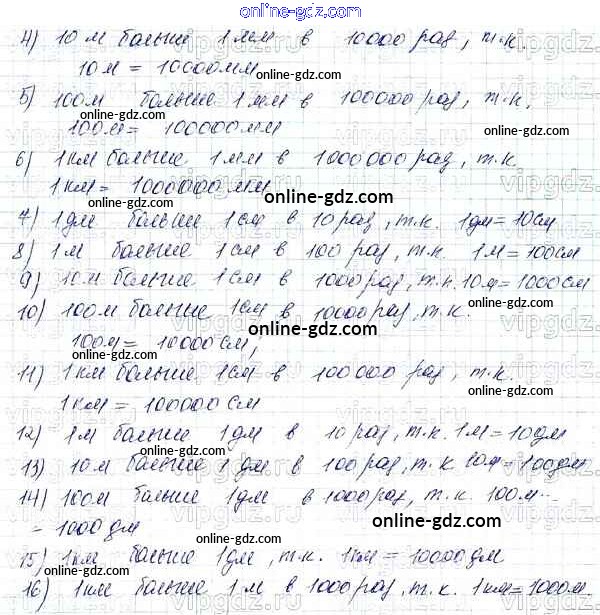 online-gdz.com
4) 10 м больше 1 мм в 10000 раз, т.к.
10 м = 10000 мм
online-gdz.com
5) 100 м больше 1 мм в 100000 раз, т.к.
100 м = 100000 мм
online-gdz.com
6) 1 км больше 1 мм в 1000000 раз, т.к.
1 км = 1000000 мм
online-gdz.com
7) 1 дм больше 1 см в 10 раз, т.к. 1 дм = 10 см
8) 1 м больше 1 см в 100 раз, т.к. 1 м = 100 см
online-gdz.com
9) 10 м больше 1 см в 1000 раз, т.к. 10 м = 1000 см
10) 100 м больше 1 см в 10000 раз, т.к.
online-gdz.com
100 м = 10000 см,
online-gdz.com
11) 1 км больше 1 см в 100000 раз, т.к.
online-gdz.com
1 км = 100000 см
12) 1 м больше 1 дм в 10 раз, т.к. 1 м = 10 дм
online-gdz.com
13) 10 м больше 1 дм в 100 раз, т.к. 10 м = 100 дм
online-gdz.com
14) 100 м больше 1 дм в 1000 раз, т.к. 100 м
= 1000 дм
online-gdz.com
15) 1 км больше 1 дм, т.к. 1 км = 10000 дм
online-gdz.com
16) 1 км больше 1 м в 1000 раз, т.к. 1 км = 1000 м.